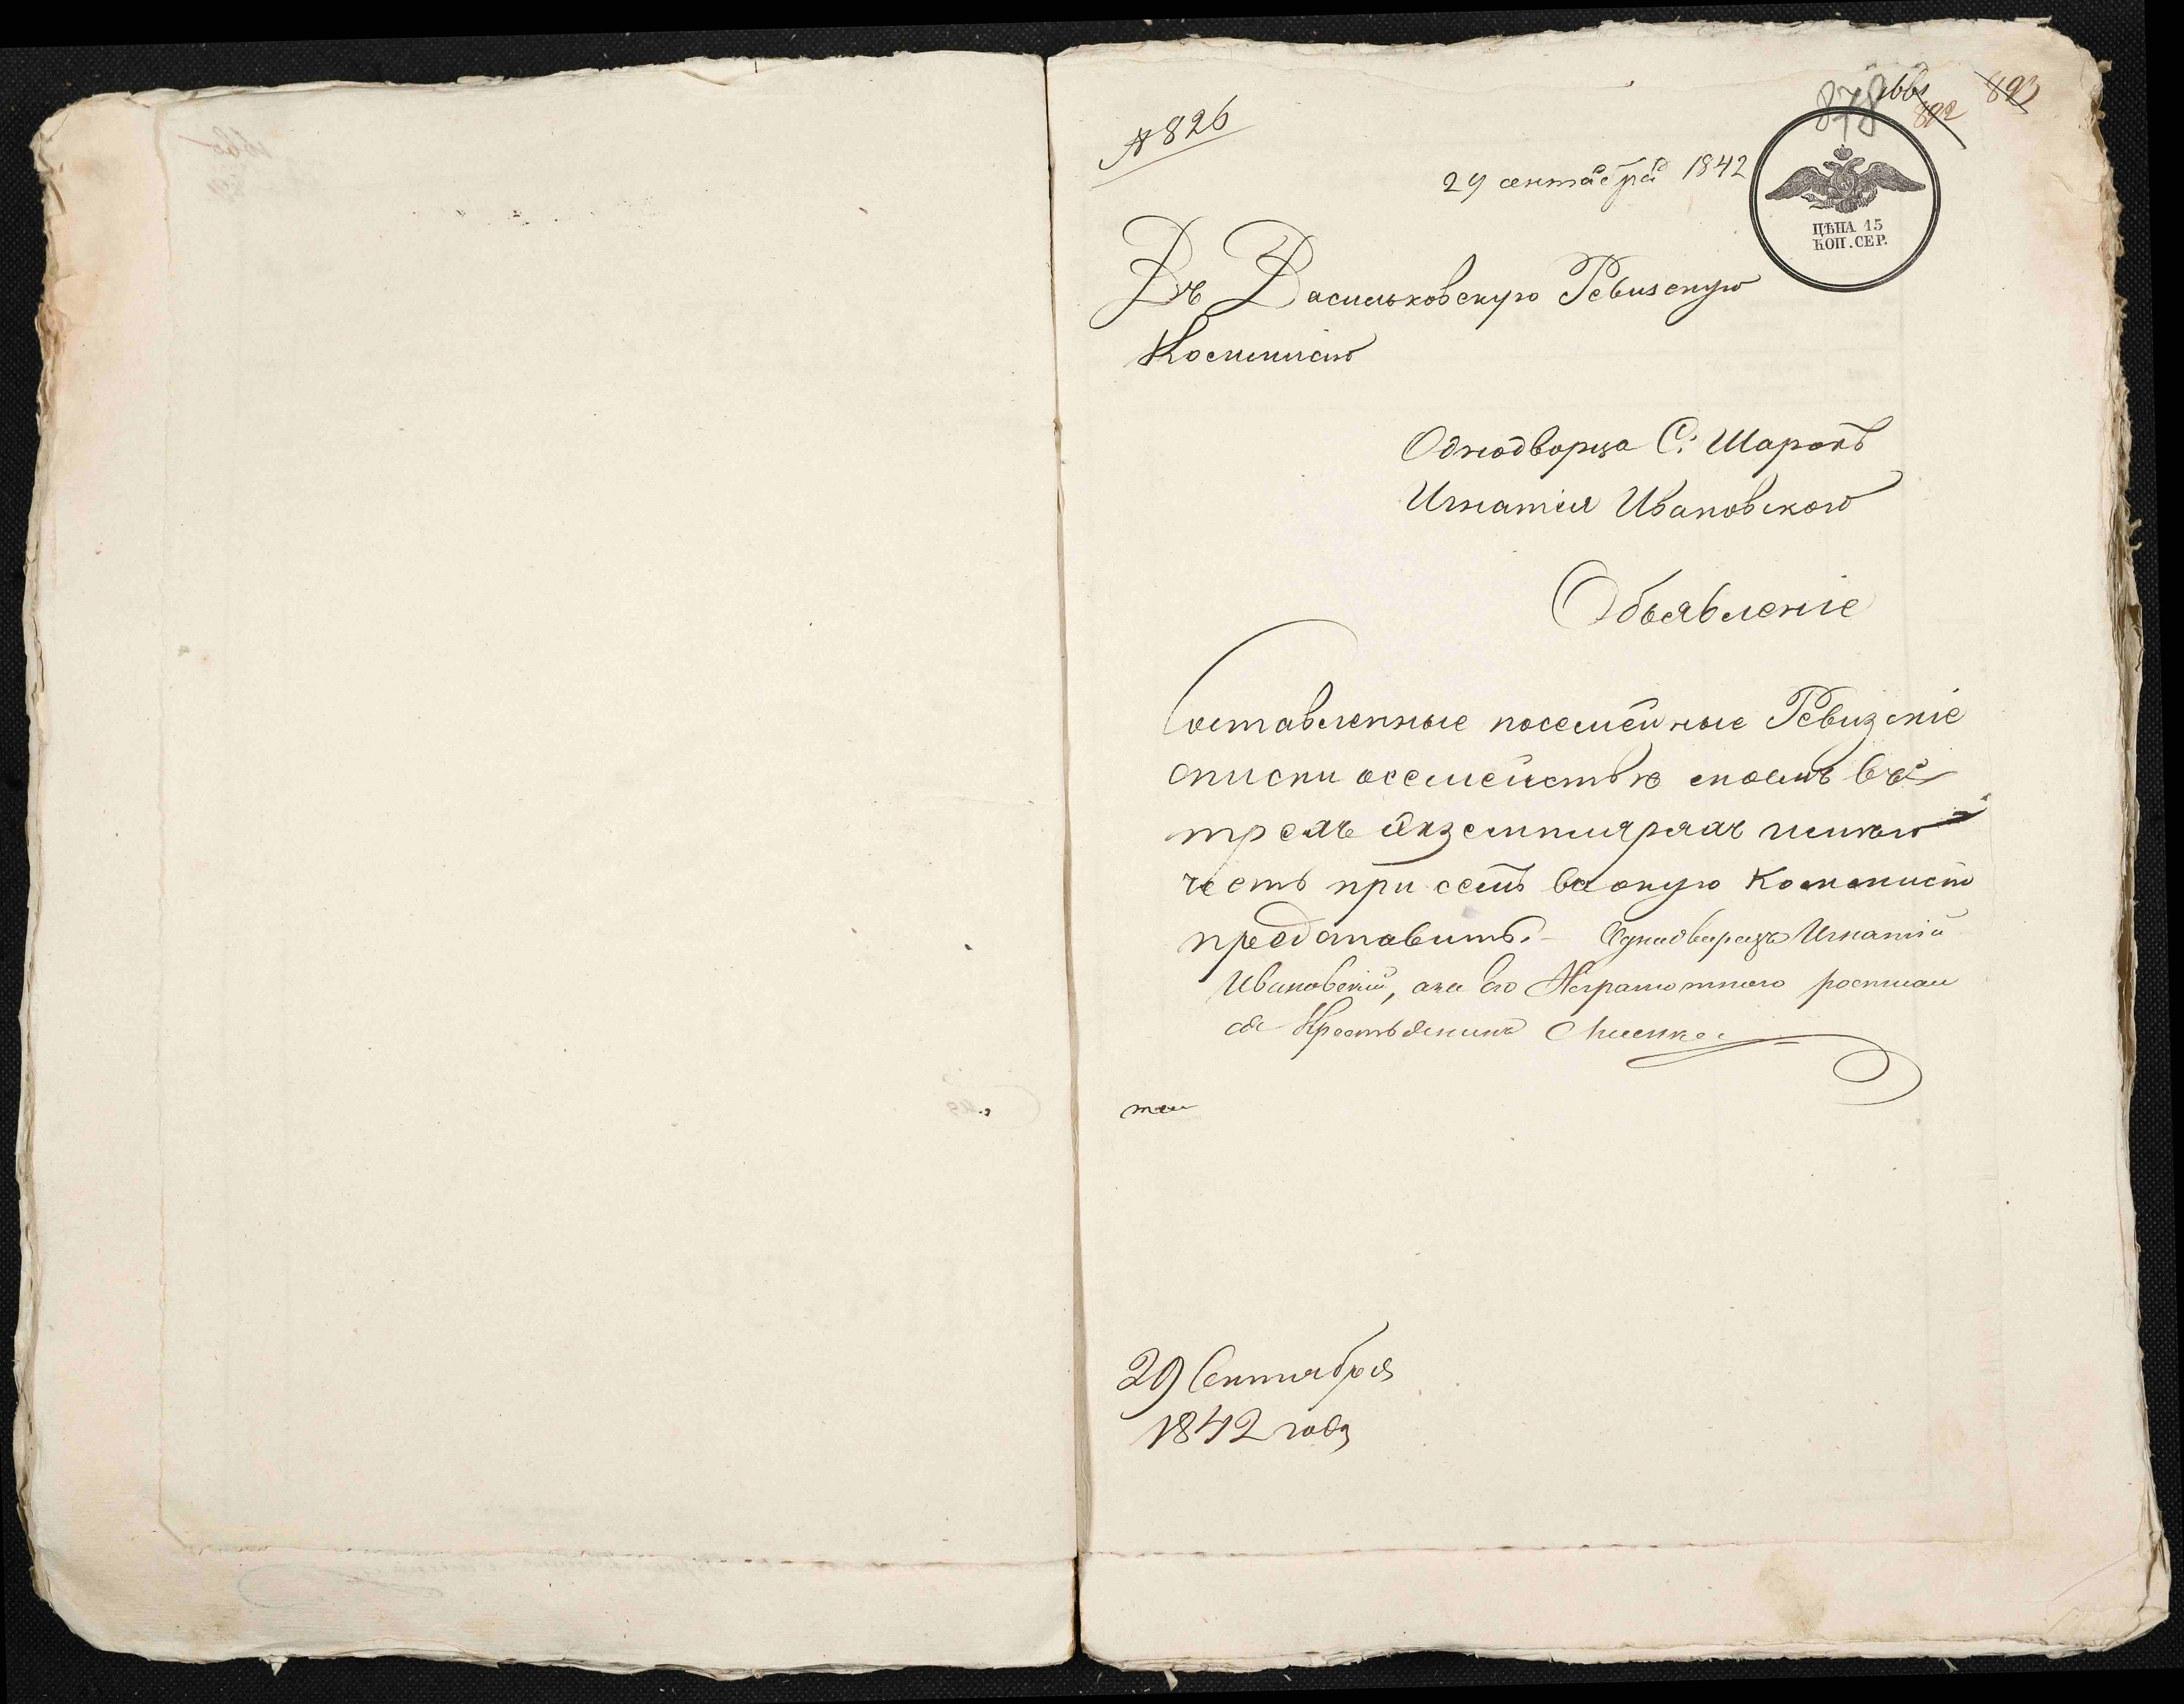 № 826
878
892
893
29 сентября 1842
ЦѢНА 15
КОП. СЕР.
Въ Васильковскую Ревизскую
Коммисію
Однодворца С: Шарокъ
Игнатія Ивановскаго
Объявленіе
Составленные посемейные Ревизскіе
списки осемействѣ моемъ въ
трехъ экземплярахъ имѣю
честь при семъ въ оную Коммисію
представить.– Однодворецъ Игнатій
Ивановскій, аза его Неграмотного росписал
ся Крестьянинъ
29 Сентября
1842 года